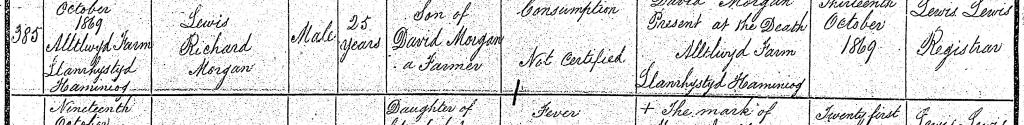 385
October
1869
Alltlwyd Farm
Llanrhystyd
Haminiog
Lewis
Richard
Morgan
Male
25
years
Son of
David Morgan
a Farmer
Consumption
Not Certified
David Morgan
Present at the Death
Alltlwyd Farm
Llanrhystyd Haminiog
Thirteenth
October
1869
Lewis Lewis
Registrar
Nineteenth
October
Daughter of
Fever
+ The mark of
Twenty first
Lewis Lewis